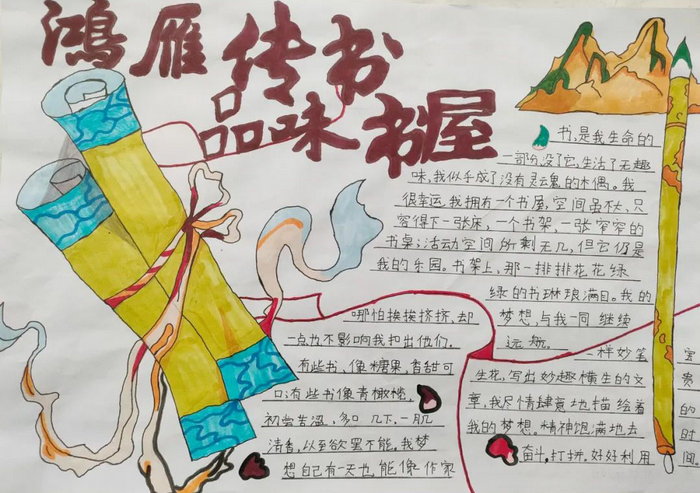 鸿雁传书
品味书屋
书,是我生命的
一部分,没了它,生活了无趣
味,我似乎成了没有灵魂的木偶。我
很幸运,我拥有一个书屋,空间虽不大、只
容得下一张床,一个书架,一张窄窄的
书桌;活动空间所剩无几,但它仍是
我的乐园。书架上,那一排排花花绿
绿的书琳琅满目。我的
梦想与我一同继续
远航。
哪怕挨挨挤挤、却
一点也不影响我扣出他们。
有些书,像糖果,香甜可
口;有些书像青橄榄,
初尝苦涩,多口几下,一肌
清香,以至欲罢不能。我梦
想自己有一天也能像作家
一样妙笔
生花,写出妙趣横生的文
章,我尽情肆意地描绘着
我的梦想。精神饱满地去
奋斗,打拼。好好利用
宝
贵
的
时
间。